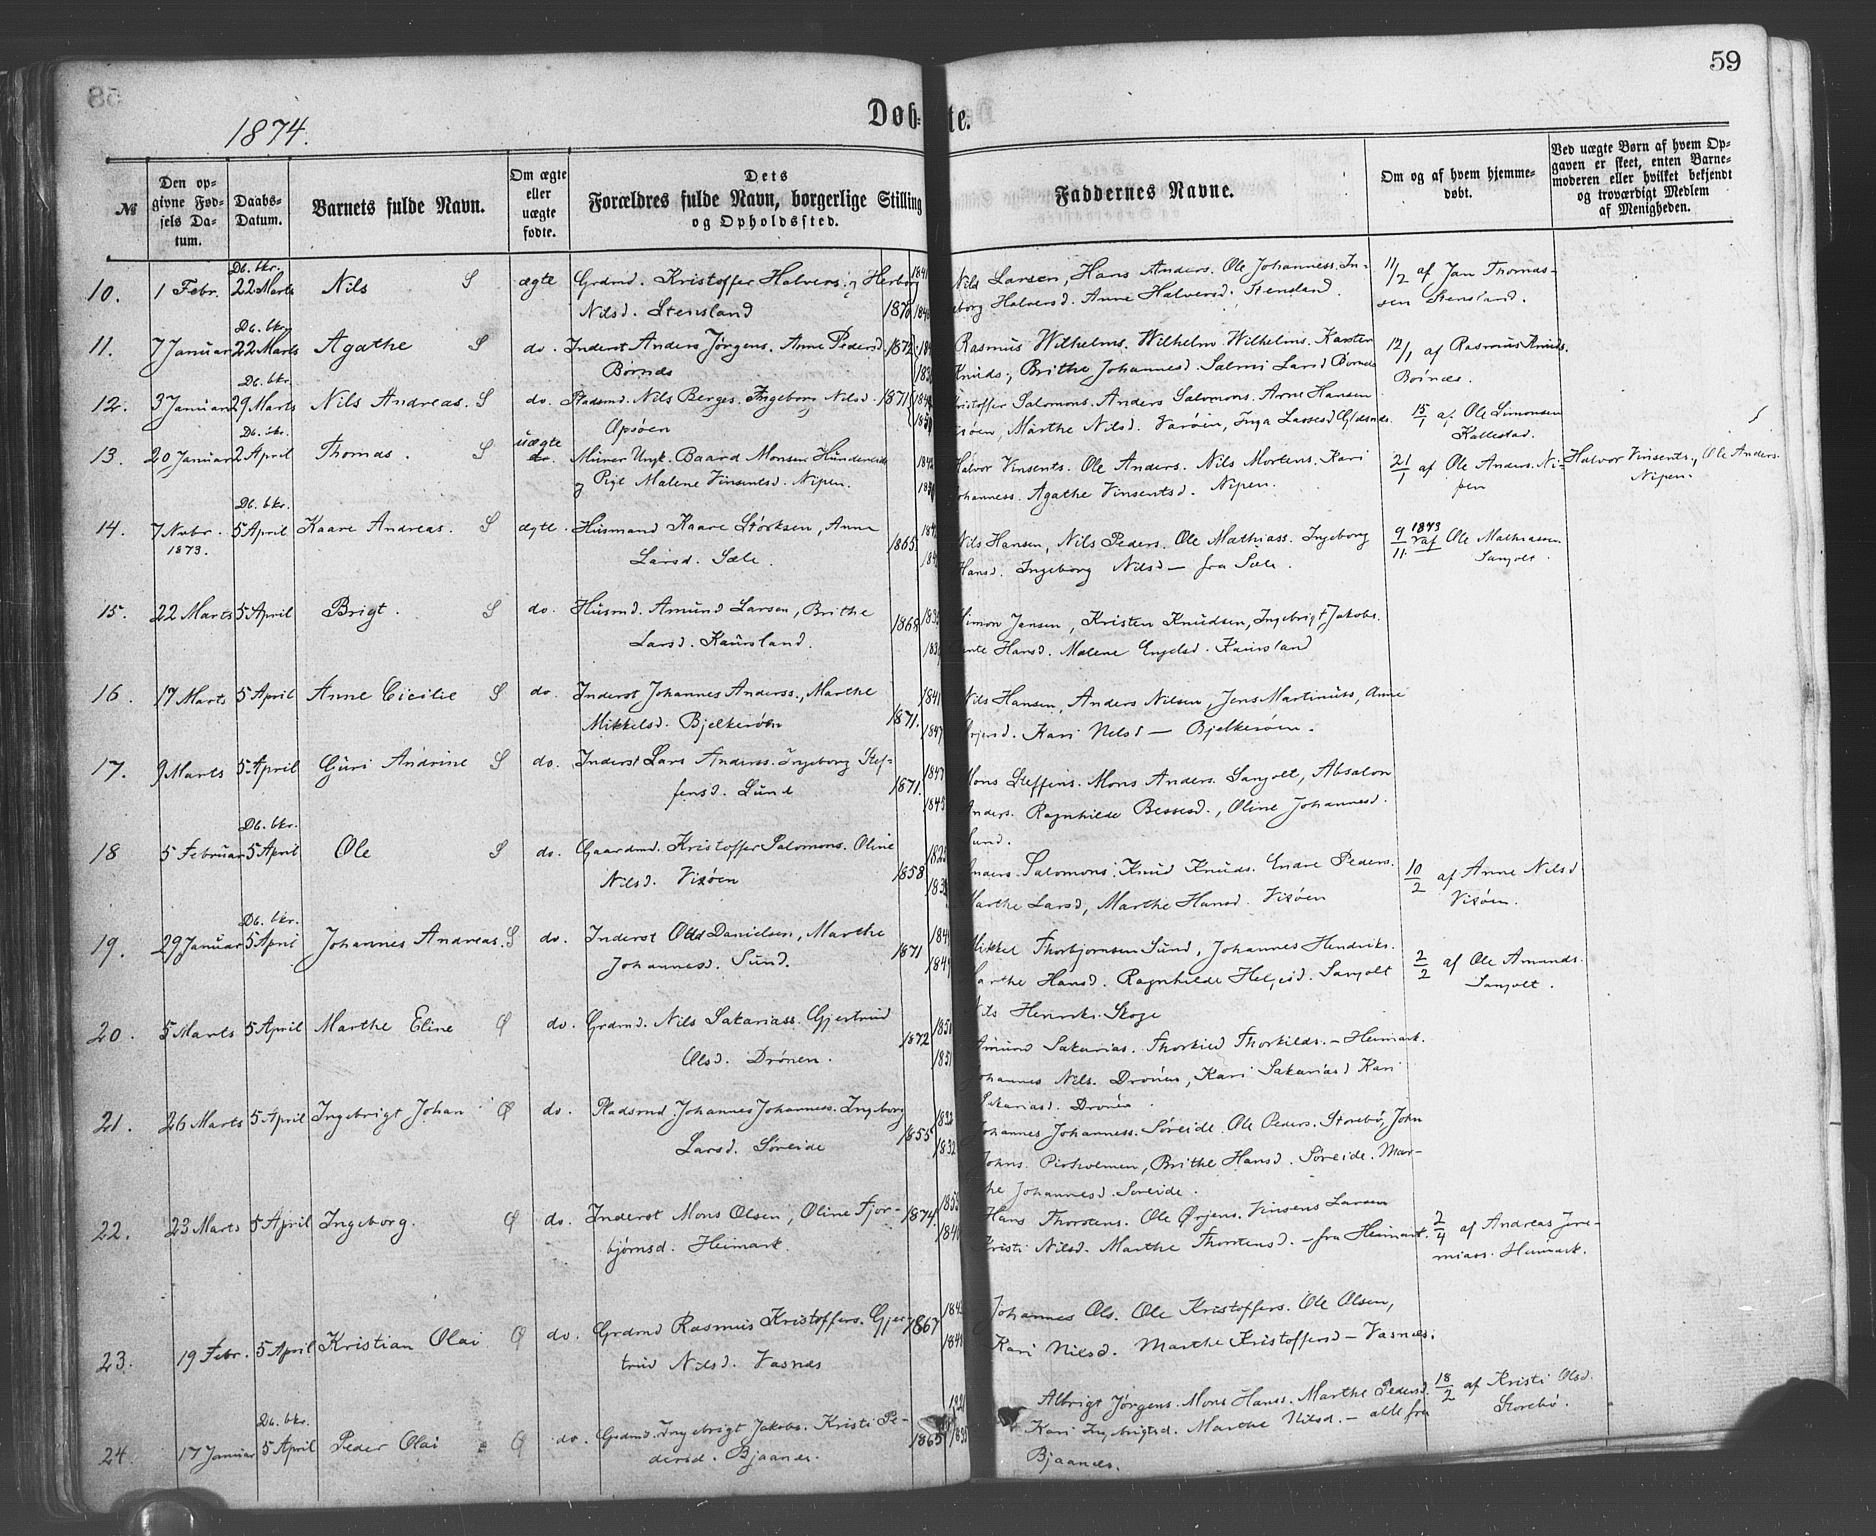 59
1874.
Døb-te.
№
Den opgivne Fødsels Datum.
Daabs-Datum.
Barnets fulde Navn.
Om ægte eller uægte fødte.
Dets Forældres fulde Navn, borgerlige Stilling og Opholdssted.
Faddernes Navne.
Om og af hvem hjemmedøbt.
Ved uægte Børn af hvem Opgaven er skeet, enten Barnemoderen eller hvilket bekjendt og troværdigt Medlem af Menigheden.
10. 1 Febr. Db. bkr. 22 Marts Nils S ægte Grdmd. Kristoffer Halvers. og Herborg
Nilsd. Stensland 1870
Nils Larsen, Hans Anders. Ole Johanness. In-
geborg Halversd. Anne Halversd. Stensland.
11/2 af Jan Thomas-
sen Stensland.
11. 7 Januar Db. bkr. 22 Marts Agathe S do. Inderst Anders Jørgens. Anne Pedersd.
Børnæs 1872
Rasmus Wilhelms. Wilhelm Wilhelms. Karsten
Knuds., Brithe Johannesd. Salmi Larsd Børnæs
12/1 af Rasmus Knuds.
Børnæs.
12. 3 Januar Db. bkr. 29 Marts Nils Andreas. S do. Pladsmd. Nils Berges. Ingeborg Nilsd.
Opsøen 1871
Kristoffer Salomons. Anders Salomons. Arne Hansen
Marthe Nilsd. Varøin, Inga Lassesd
15/1 af Ole Simonsen
Kallestad.
13. 20 Januar Db. bkr. 2 April Thomas. S uægte do. Murer Ungk. Baard Monsen Hundereide
og Pige Malene Vinsentsd. Nipen.
Halvor Vinsents. Ole Anders. Nils Mortens. Kari
Johanness. Agathe Vinsentsd. Nipen.
21/1 af Ole Anders. Ni-
pen
Halvor Vinsents., Ole Anders.
Nipen.
14. 7 Nvbr. 1873. Db. bkr. 5 April Kaare Andreas. S ægte. Husmand Kaare Størksen, Anne
Larsd. Sæle. 1865
Nils Hansen, Nils Peders. Ole Mathiass. Ingeborg
Hansd. Ingeborg Nilsd — fra Sæle.
9/11 1873 af Ole Mathiassen
Sangolt
15. 22 Marts 5 April Brigt. S do. Husmd. Amund Larsen, Brithe
Larsd. Kausland. 1868
Simon Jansen, Kristen Knudsen, Ingebrigt Jakobs.
Hansd. Malene Engelsd. Kausland
16. 17 Marts 5 April Anne Cicilie S. do. Inderst Johannes Anderss., Marthe
Mikkelsd. Bjelkerøen 1871. 1841 1847
Nils Hansen, Anders Nilsen, Jens Martinuss, Anne
Kari Nilsd — Bjelkerøen.
17. 9 Marts 5 April Guri Andrine S do. Inderst Lars Anderss. Ingeborg Stef-
fensd. Lund 1871. 1847 1845
Mons Steffens. Mons Anders. Sangolt, Absalon
Anders. Ragnhilde Bessesd., Oline Johannesd.
Lund.
18 5 Februar Db. bkr. 5 April Ole S do. Gaardmd. Kristoffer Salomons. Oline
Nilsd. Visøen 1858
Anders. Salomons. Knud Knuds. Endre Peders.
Marthe Larsd, Marthe Hansd. Visøen
10/2 af Anne Nilsd
Visøen.
19. 29 Januar Db. bkr. 5 April Johannes Andreas. S do. Inderst Odd Danielsen, Marthe
Johannesd. Sund. 1871
Mikkel Thorbjørnsen Sund, Johannes Hendriks.
Marthe Hansd. Ragnhilde Helgesd. Sangolt
Nils Henriks. Skoge
2/2 af Ole Amunds.
Sangolt.
20. 5 Marts 5 April Marthe Eline Ø do. Grdmd. Nils Sakariass. Gjertrud
Olsd. Drønen. 1872
Amund Sakarias. Thorkild Thorkilds. — Heimark.
Johannes Nils. Drønen, Kari Sakariasd Kari
Sakariasd. Drønen.
21. 26 Marts 5 April Ingebrigt Johan Ø do. Pladsmd Johannes Johanness. Ingeborg
Larsd. Søreide 1855 1832 1832
Johannes Johanness. Søreide. Ole Peders. Storebø, John
Johns. Pirholmen, Brithe Hansd. Søreide. Mar-
the Johannesd. Søreide.
22. 23 Marts 5 April Ingeborg. Ø do. Inderst Mons Olsen, Oline Tjor-
bjørnsd. Heimark. 1874.
Hans Thorstens. Ole Ørjens. Vinsens Larsen
Kristi Nilsd. Marthe Thorstensd. — fra Heimark.
2/4 af Andreas Jere-
miass. Heimark.
23. 19 Febr. 5 April Kristian Olai Ø do. Grdmd Rasmus Kristoffers. Gjer-
trud Nilsd. Vasnæs 1867
Johannes Ols. Ole Kristoffers. Ole Olsen,
Kari Nilsd. Marthe Kristoffersd — Vasnæs.
24. 17 Januar Db. bkr. 5 April Peder Olai Ø do. Grdmd. Ingebrigt Jakobs. Kristi Pe-
dersd. Bjaanæs. 1865
Albrigt Jørgens. Mons Hanss. Marthe Pedersd.
Kari Ingebrigtsd. Marthe Nilsd. — alle fra
Bjaanæs.
18/2 af Kristi Olsd.
Storebø.